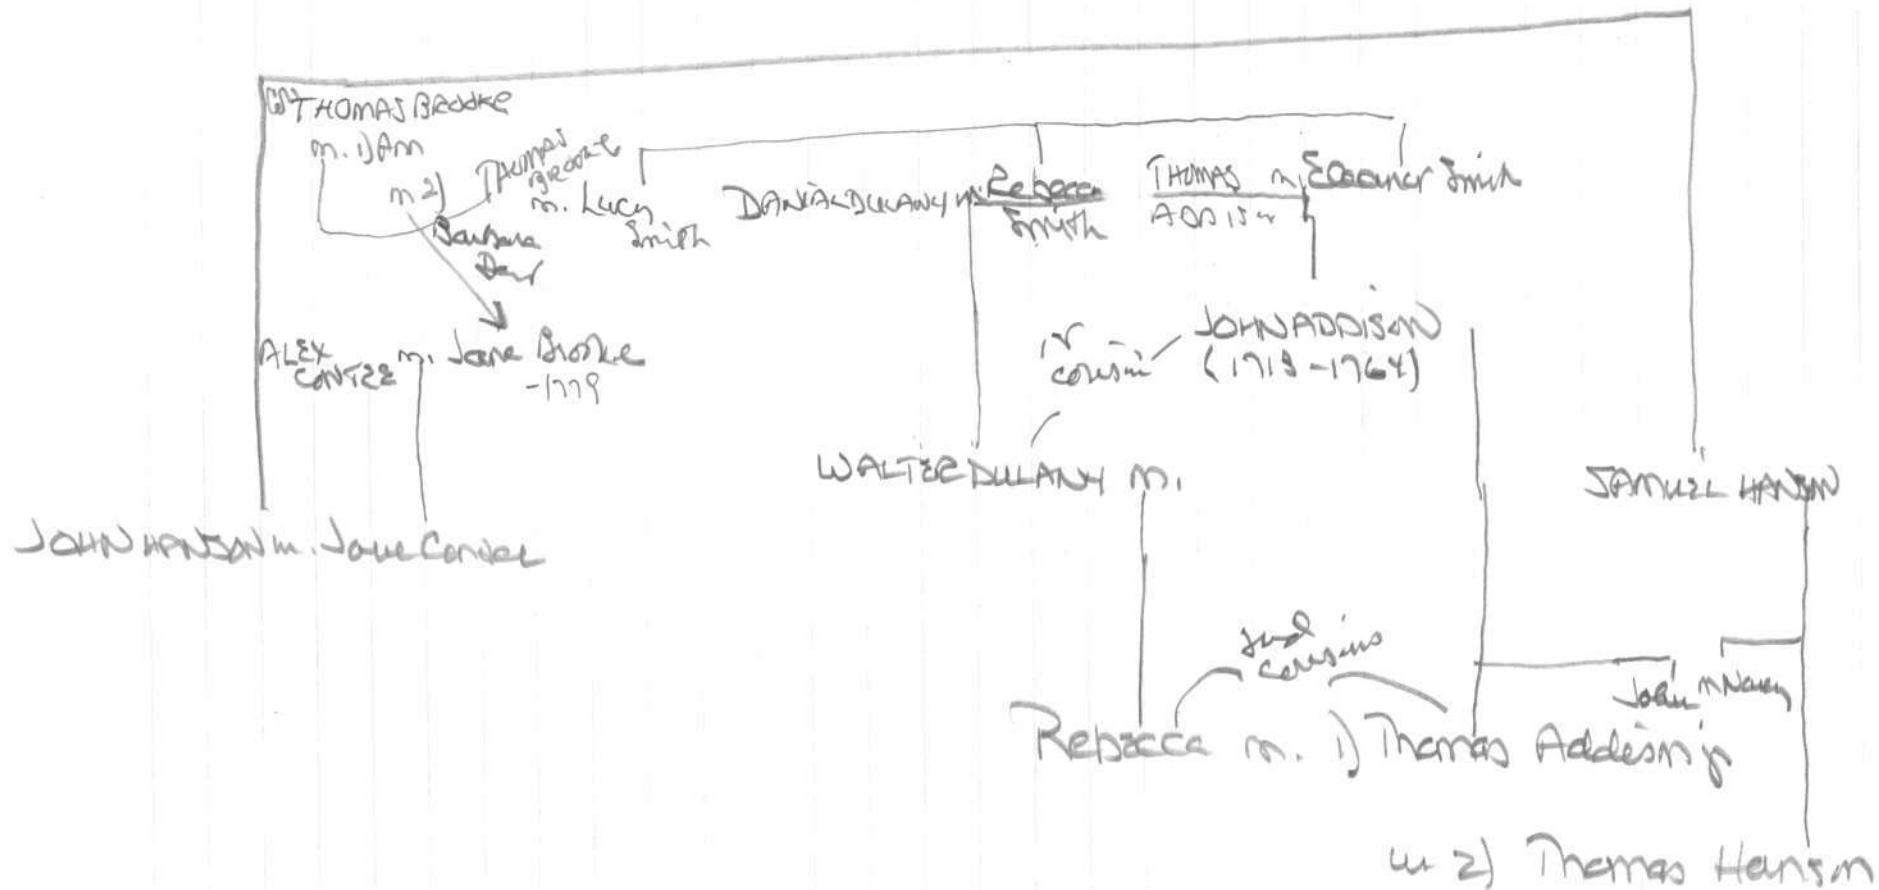 Col THOMAS BROOKE
m. 1) Ann
m 2)
THOMAS
BROOKE
m. Lucy
Smith
Barbara
Dent
DANIAL DULANY m. Rebecca
Smith
THOMAS m. Eleanor Smith
ADDISON
ALEX
CONTEE m. Jane Brooke
-1779
1st
cousin
JOHN ADDISON
(1713-1764)
WALTER DULANY m.
SAMUEL HANSON
JOHN HANSON m. Jane Contee
2nd
cousins
John m Nancy
Rebecca m. 1) Thomas Addison jr
m 2) Thomas Hanson